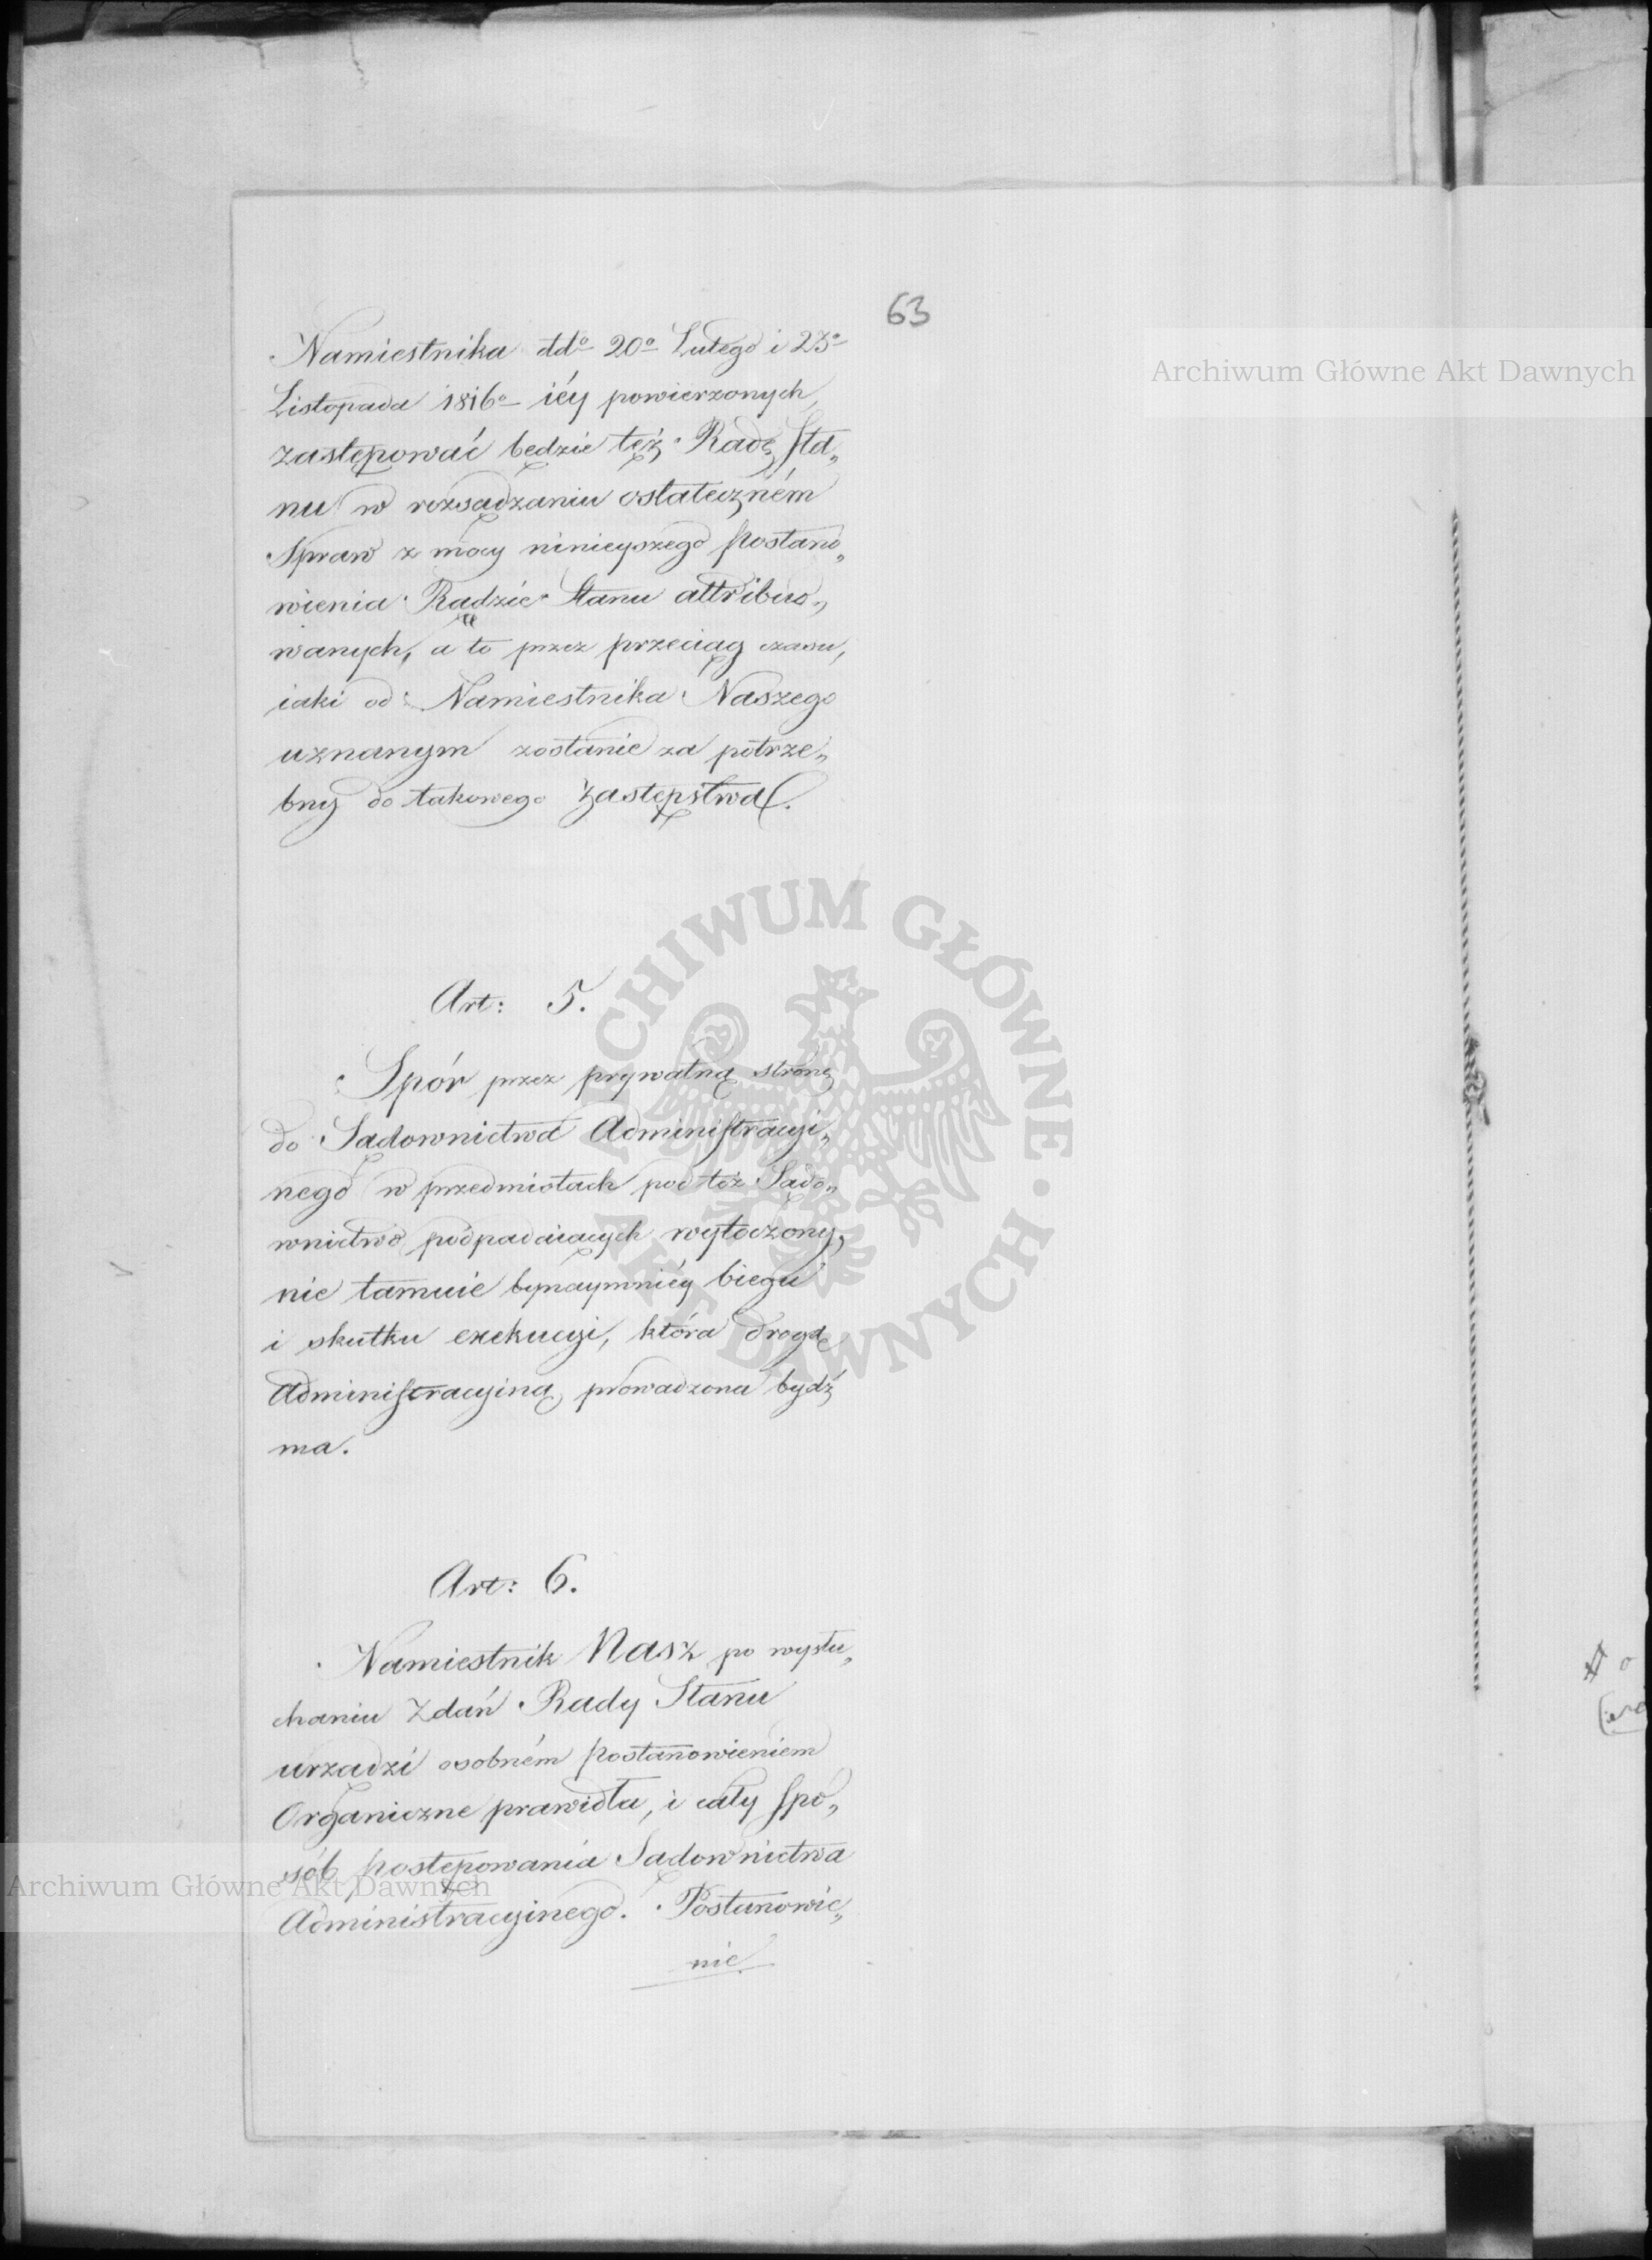 63
Archiwum Główne Akt Dawnych
Namiestnika dd° 20° Lutego i 23°
Listopada 1816° iéy powierzonych,
zastępować będzie też Radę Sta„
nu w rozsądzaniu ostateczném
Spraw z mocy ninieyszego Postano„
wienia Radzie Stanu attribuo„
wanych, a to przez przeciąg czasu,
iaki od Namiestnika Naszego
uznanym zostanie za potrze„
bny do takowego zastępstwa.
ARCHIWUM GŁÓWNE AKT DAWNYCH
Art: 5.
Spór przez prywatną stronę
do Sądownictwa Administracyi„
nego w przedmiotach pod toż Sądo„
wnictwo podpadaiących wytoczony,
nie tamuie bynaymniéy biegu
i skutku exekucyi, która drogą
Administracyiną prowadzona bydź
ma.
Art: 6.
Namiestnik Nasz po wysłu„
chaniu Zdań Rady Stanu
urządzi osobném Postanowieniem
Organiczne prawidła, i cały spo„
sób postępowania Sądownictwa
Archiwum Główne Akt Dawnych
Administracyinego. Postanowie„
nie